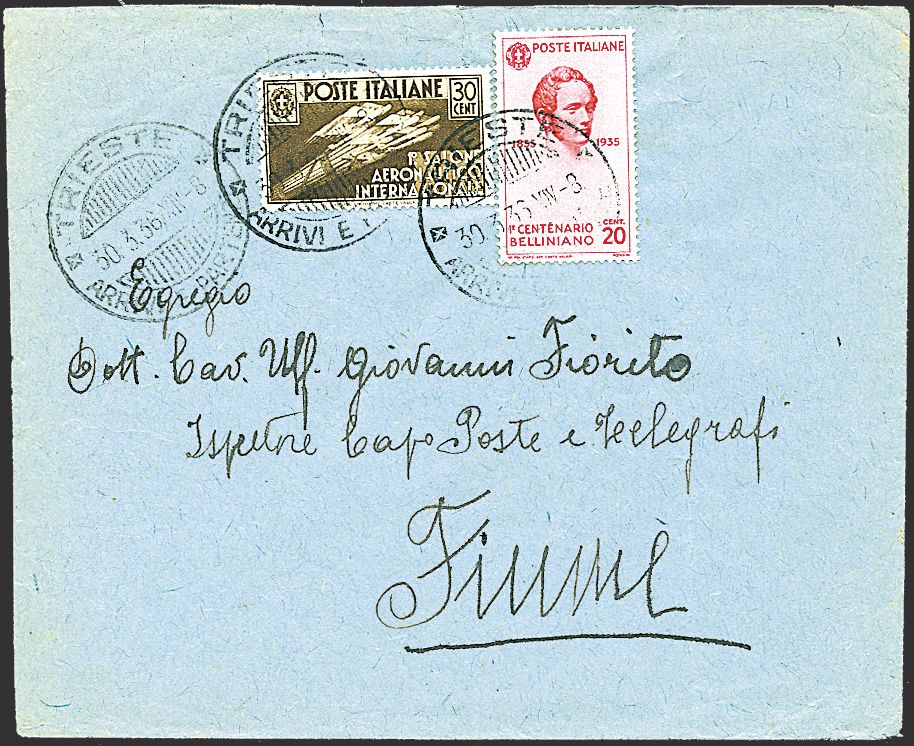 POSTE ITALIANE
30
CENT
1º SALONE
AERONAUTICO
INTERNAZIONALE
POSTE ITALIANE
1835 1935
1º CENTENARIO
BELLINIANO
CENT.
20
TRIESTE
30.3.36 XIV-8
ARRIVI E PARTENZE
TRIESTE
ARRIVI E P
TRIESTE
30.3.36 XIV-8
ARRIVI
Egregio
Dott. Cav. Uff. Giovanni Fiorito
Ispettore Capo Poste e Telegrafi
Fiume